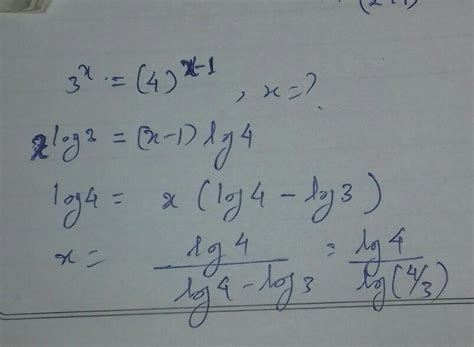 3^x = (4)^{x-1}, x=?
x log 3 = (x-1) log 4
log 4 = x (log 4 - log 3)
x = \frac{log 4}{log 4 - log 3} = \frac{log 4}{log (4/3)}